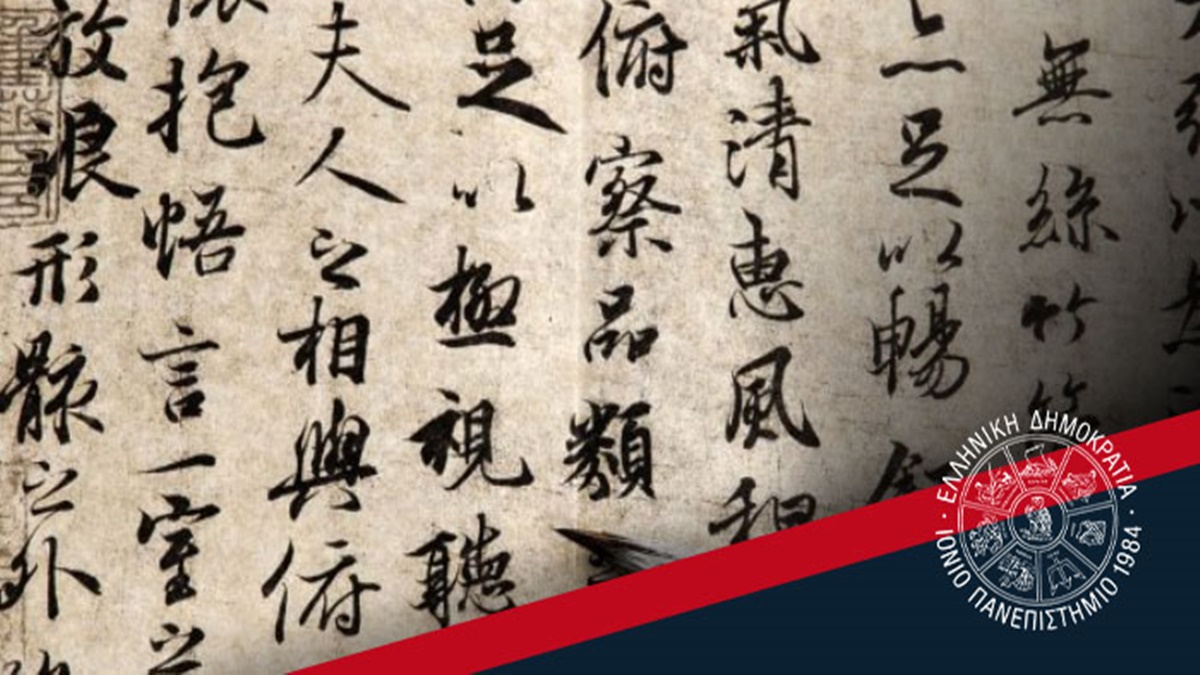 無絲竹
足以暢
氣清惠風和
俯察品類
足以極視聽
夫人之相與俯
抱悟言一室之
放浪形骸之外
ΕΛΛΗΝΙΚΗ ΔΗΜΟΚΡΑΤΙΑ
ΙΟΝΙΟ ΠΑΝΕΠΙΣΤΗΜΙΟ 1984